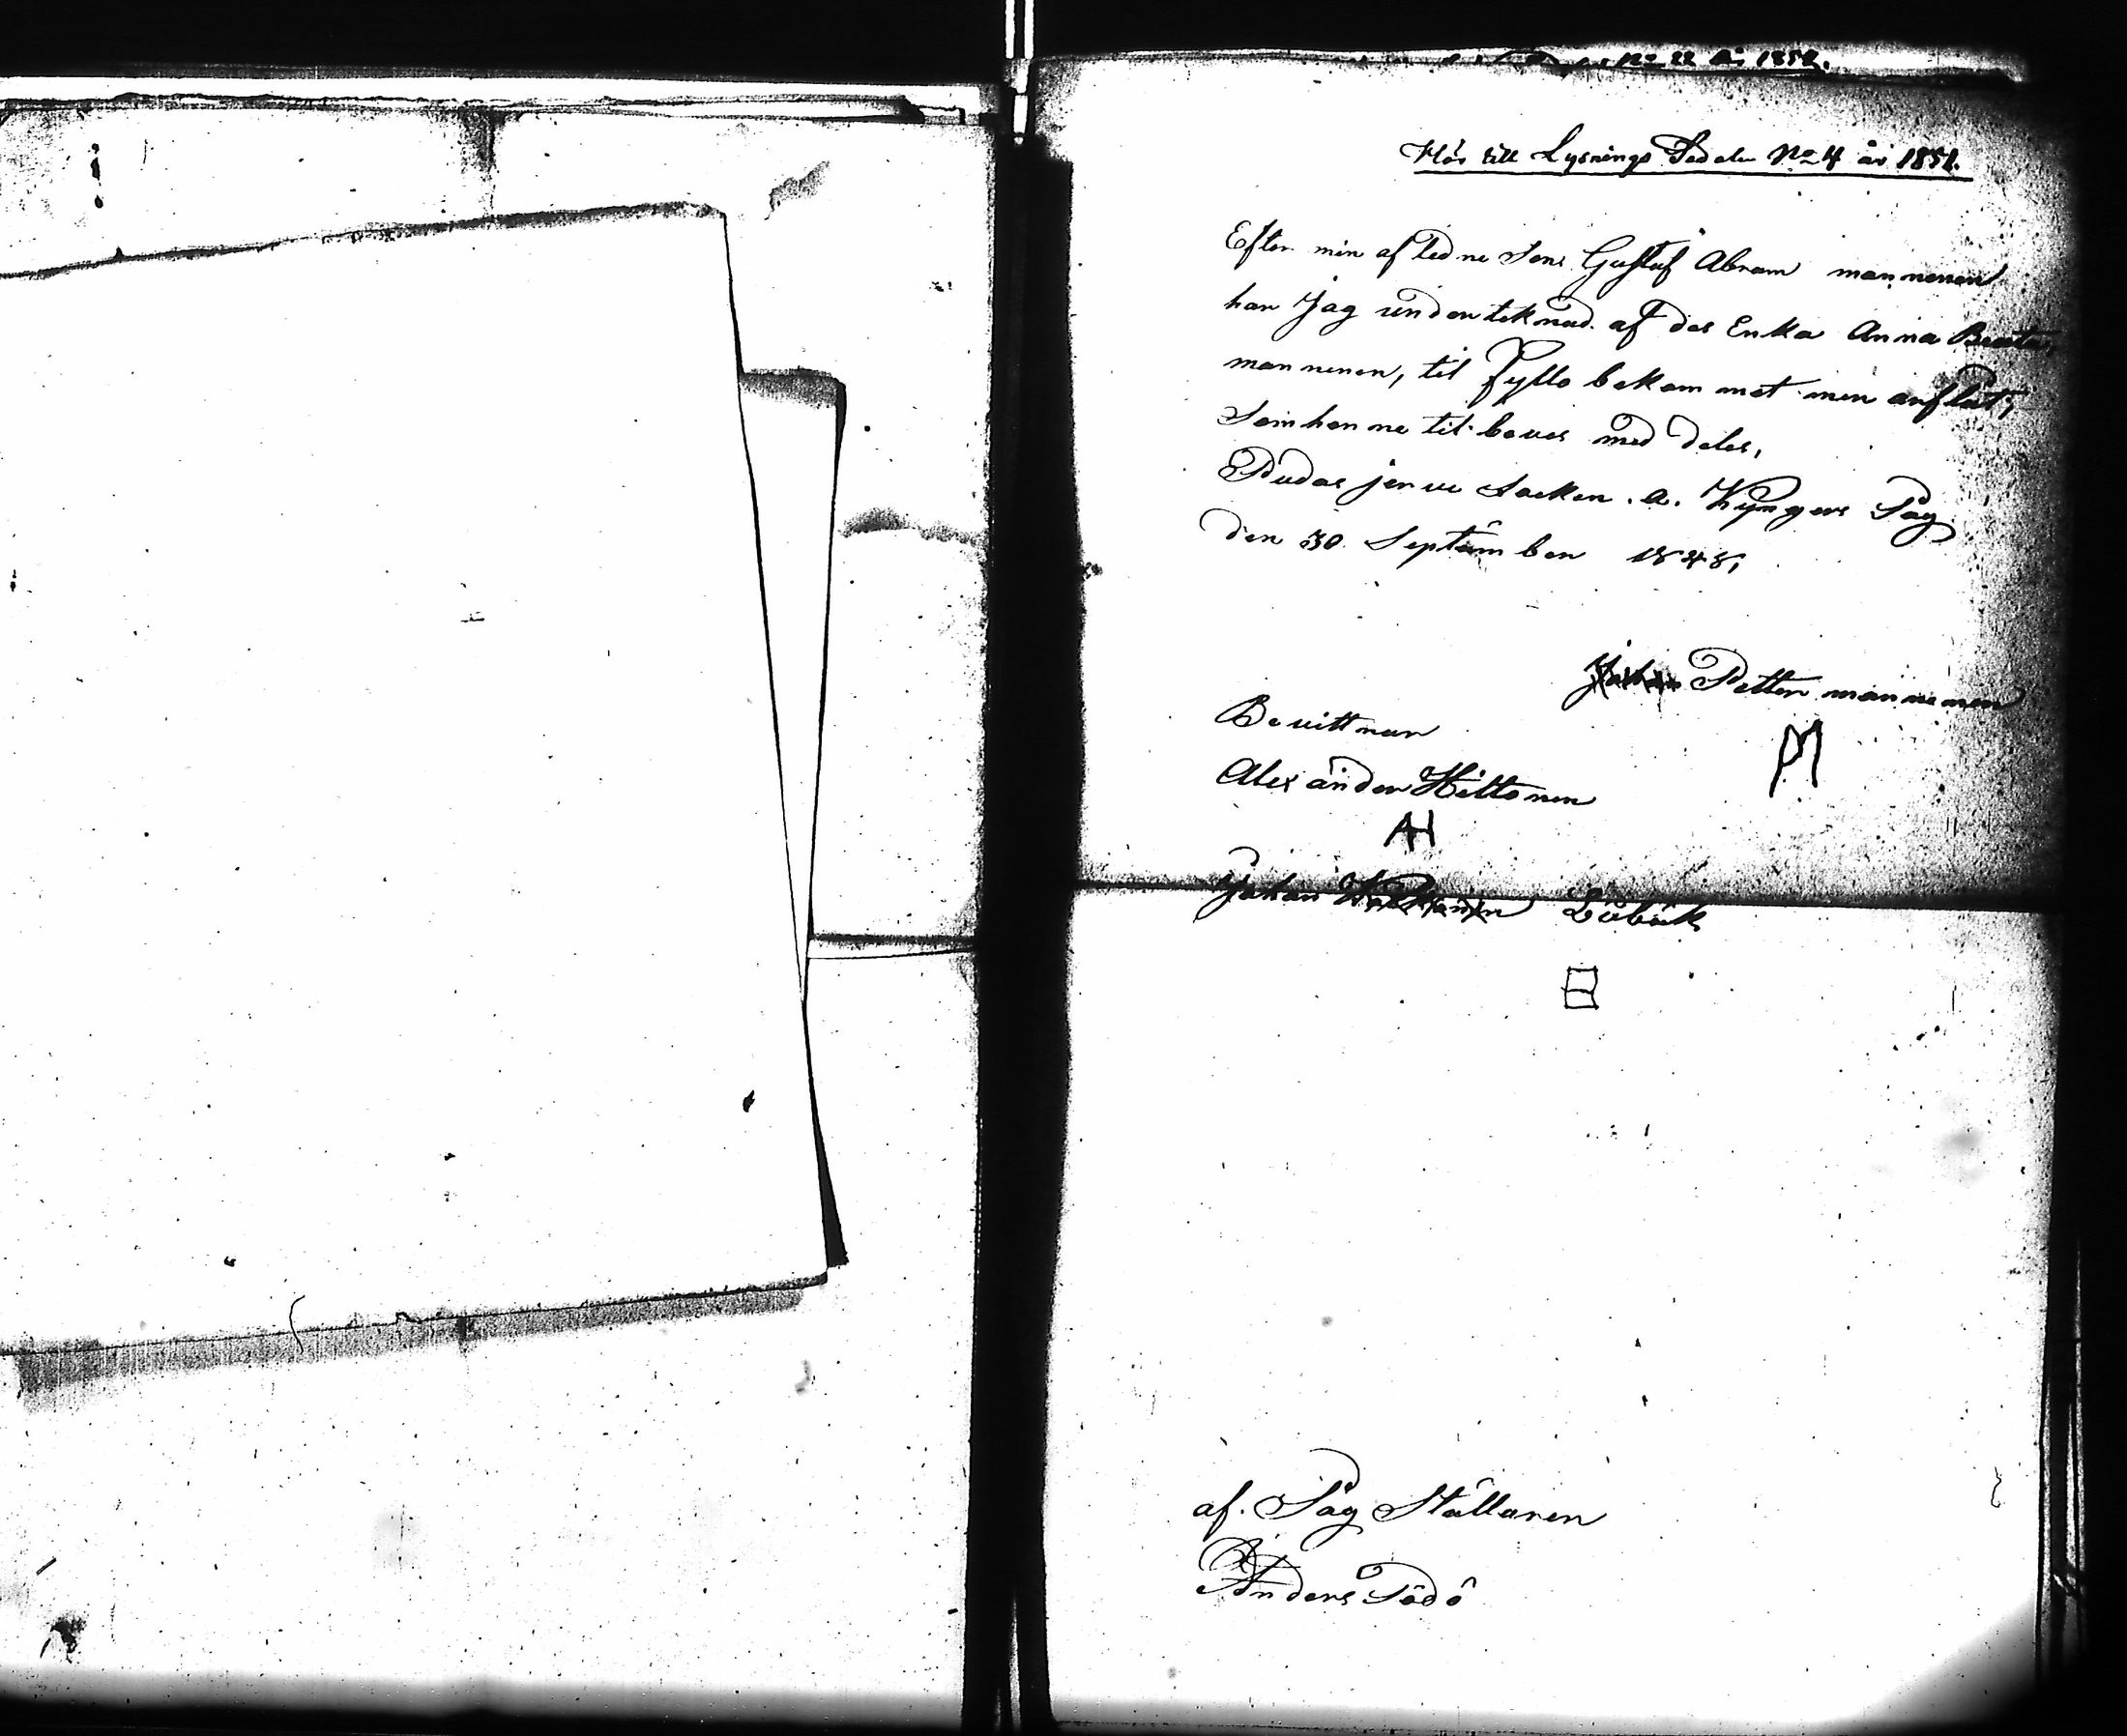 No 22 År 1852.
Hör till Lysnings Sedeln No 4 år 1851.
Efter min afledne Sons Gustaf Abram mannenen
har Jag underteknad af des Enka Anna Beata
mannenen, til fyllo bekommet min arflåt,
Som henne til beves med deles,
Pudas jerve Socken . a . Kyngers Såg
den 30 Septûmber 1848,
Petter mannenen
PM
Bevittnar
Alexander Hiltonen
AH
Johan Lübäck
af. Såg Ställaren
Anders Södö